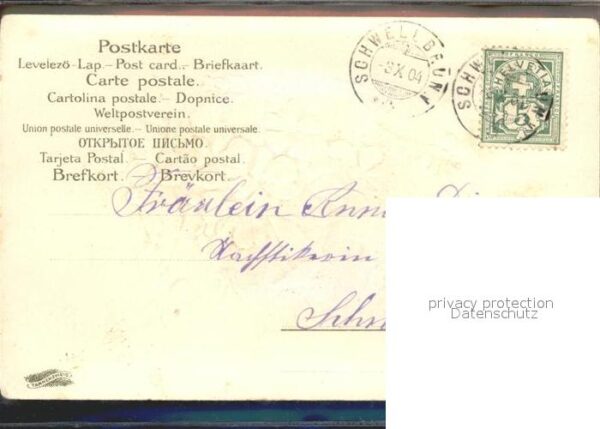 Postkarte
Levelező-Lap.– Post card.– Briefkaart.
Carte postale.
Cartolina postale.– Dopnice.
Weltpostverein.
Union postale universelle.– Unione postale universale.
ОТКРЫТОЕ ПИСЬМО.
Tarjeta Postal.– Cartão postal.
Brefkort. Brevkort.
SCHWELLBRUNN
-3 X 04
HELVETIA
Fräulein
privacy protection
Datenschutz